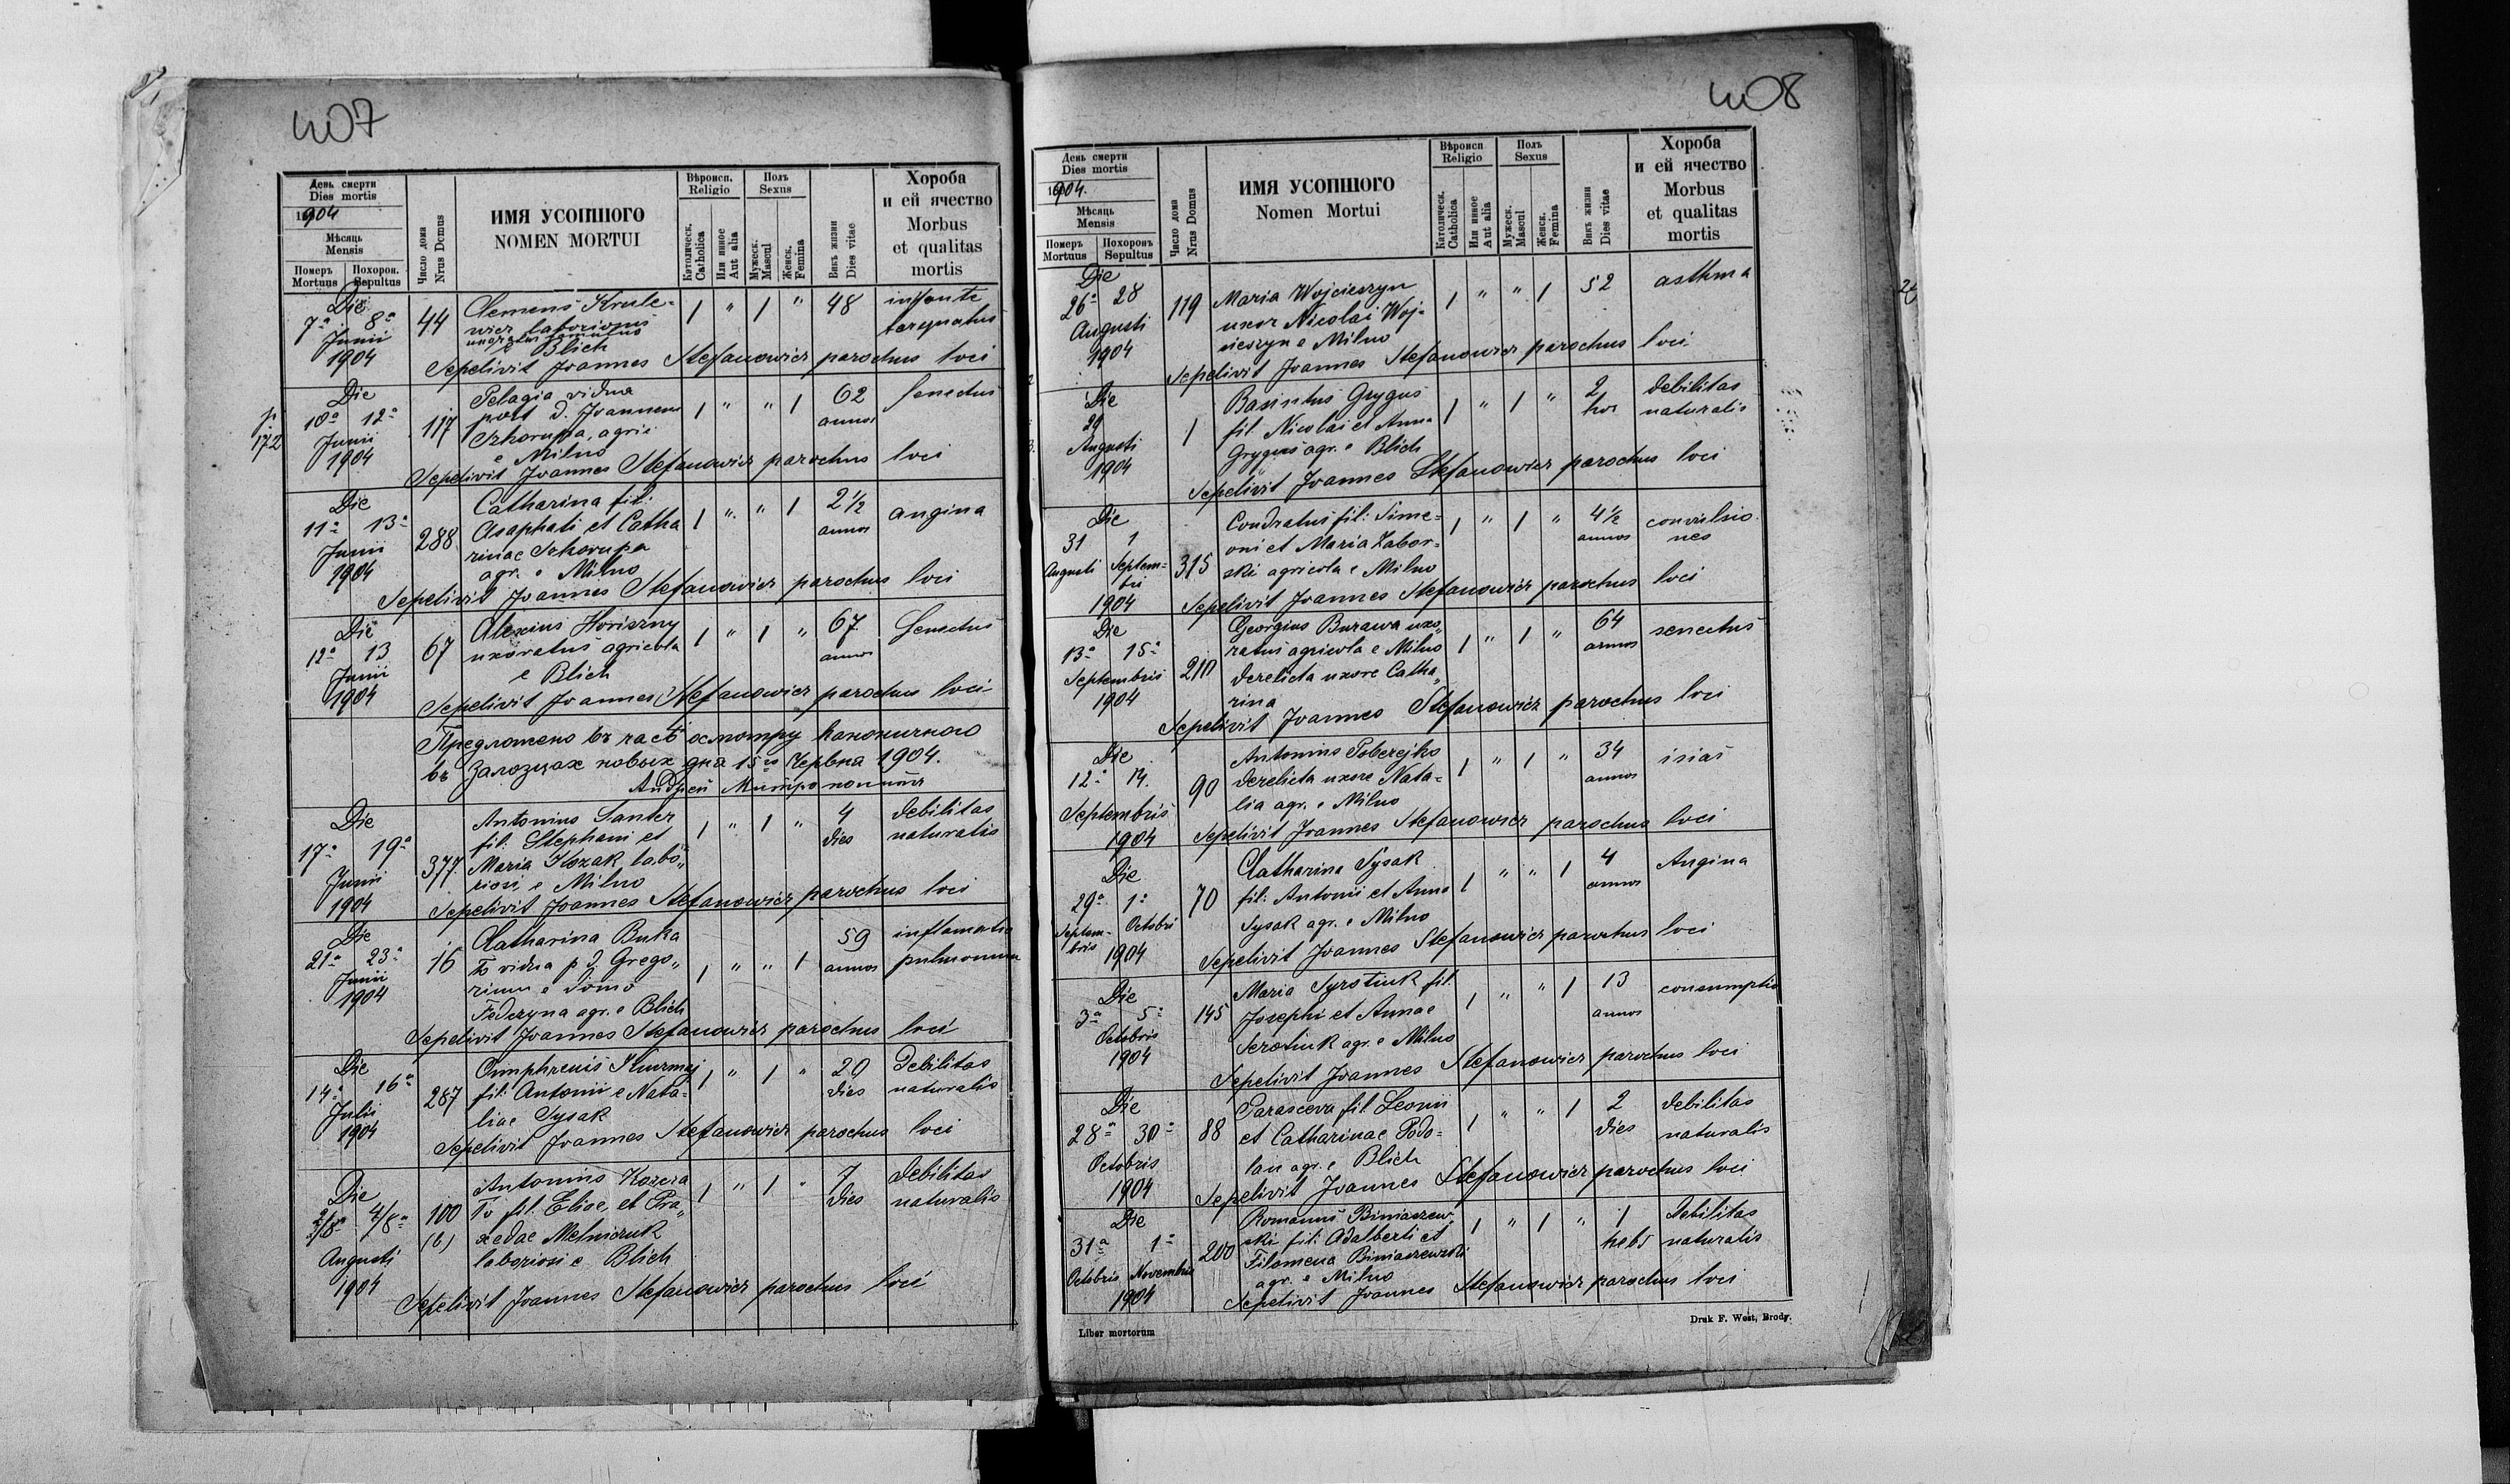 407
День смерти
Dies mortis
1904
Мѣсяць
Mensis
Померъ
Mortuus
Похорон.
Sepultus
Число дома
Nrus Domus
ИМЯ УСОПШОГО
NOMEN MORTUI
Вѣроисп.
Religio
Католическ.
Catholica
Или инное
Aut alia
Полъ
Sexus
Мужеск.
Mascul
Женск.
Femina
Викъ жизни
Dies vitae
Хороба
и ей ячество
Morbus
et qualitas
mortis
Die
7ª 8ª
Junii
1904
44
Clemens Krule=
wicz laboriosus
uxoratus
e Blich
1 " 1 "
48
Sepelivit Joannes Stefanowicz parochus loci
p.
172
Die
10ª 12ª
Junii
1904
117
Pelagia vidua
post d. Joannem
Szkorupa, agric
e Milno
1 " " 1
62
annos
Senectus
Sepelivit Joannes Stefanowicz parochus loci
Die
11ª 13ª
Junii
1904
288
Catharina fil:
Asaphati et Catha
rinae Szkorupa
agr. e Milno
1 " " 1
2½
annos
angina
Sepelivit Joannes Stefanowicz parochus loci
Die
12ª 13
Junii
1904
67
Alexius Horiszny
uxoratus agricola
e Blich
1 " 1 "
67
annos
Senectus
Sepelivit Joannes Stefanowicz parochus loci
Предложено въ часѣ осмотру каноничного
въ Залозцах новых дня 15го Червня 1904.
Андрей Митрополит
Die
17ª 19ª
Junii
1904
377.
Antonius Santer
fil. Stephani et
Maria Kozak labo„
riosi e Milno
1 " 1 "
4
dies
debilitas
naturalis
Sepelivit Joannes Stefanowicz parochus loci
Die
21ª 23ª
Junii
1904
16
Catharina Buka
To vidua p d. Grego„
rium e domo
Federyna agr. e Blich
1 " " 1
59
annos
inflamatio
pulmonum
Sepelivit Joannes Stefanowicz parochus loci
Die
14ª 16ª
Julii
1904
287
Onuphreus
fil: Antonii e Nata=
liae Sysak
1 " 1 "
20
dies
Debilitas
naturalis
Sepelivit Joannes Stefanowicz parochus loci
Die
2/8ª 4/8ª
Augusti
1904
100
(b)
Antonius Kozera
To fil. Eliae, et Pra„
xedae Melniczuk
laboriosi e Blich
1 " 1 "
7
dies
debilitas
naturalis
Sepelivit Joannes Stefanowicz parochus loci
408
День смерти
Dies mortis
1904.
Мѣсяць
Mensis
Померъ
Mortuus
Похоронъ
Sepultus
Число дома
Nrus Domus
ИМЯ УСОПШОГО
Nomen Mortui
Вѣроисп
Religio
Католическ.
Catholica
Или инное
Aut alia
Полъ
Sexus
Мужеск.
Mascul
Женск.
Femina
Викъ жизни
Dies vitae
Хороба
и ей ячество
Morbus
et qualitas
mortis
Die
26ª 28
Augusti
1904
119
Maria Wojcieszyn
uxor Nicolai Woj=
cieszyn e Milno
1 " " 1
52
asthma
Sepelivit Joannes Stefanowicz parochus loci
Die
29
Augusti
1904
1
Grygus
fil. Nicolai et Anna
Grygus agr. e Blich
1 " 1 "
2
hor
debilitas
naturalis
Sepelivit Joannes Stefanowicz parochus loci
Die
31 1
Augusti Septem=
bri
1904
315
Condratus fil: Sime=
oni et Maria Zabor=
ski agricola e Milno
1 " 1 "
4½
annos
convulsio
nes
Sepelivit Joannes Stefanowicz parochus loci
Die
13ª 15ª
Septembris
1904
210
Georgius Burawa uxo„
ratus agricola e Milno
derelicta uxore Catha„
rina
1 " 1 "
64
annos
senectus
Sepelivit Joannes Stefanowicz parochus loci
Die
12ª 14.
Septembris
1904
90
Antonius Poberejko
derelicta uxore Nata=
lia agr. e Milno
1 " 1 "
34
annos
Sepelivit Joannes Stefanowicz parochus loci
Die
29ª 1ª
Septem= Octobri
bris
1904
70
Catharina Sysak
fil: Antonii et Anna
Sysak agr. e Milno
1 " " 1
4
annos
Angina
Sepelivit Joannes Stefanowicz parochus loci
Die
3ª 5ª
Octobris
1904
145
Maria Syrotiuk fil.
Josephi et Annae
Serotiuk agr. e Milno
1 " " 1
13
annos
consumptio
Sepelivit Joannes Stefanowicz parochus loci
Die
28ª 30ª
Octobris
1904
88
Parasceva fil Leonii
et Catharinae Podo=
lan agr. e Blich
1 " " 1
2
dies
debilitas
naturalis
Sepelivit Joannes Stefanowicz parochus loci
Die
31ª 1ª
Octobris Novembris
1904
200
Romanus Biniaszew
ski fil: Adalberti et
Filomena Biniaszewski
agr. e Milno
1 " 1 "
1
hebd
debilitas
naturalis
Sepelivit Joannes Stefanowicz parochus loci
Liber mortorum
Druk F. West, Brody.